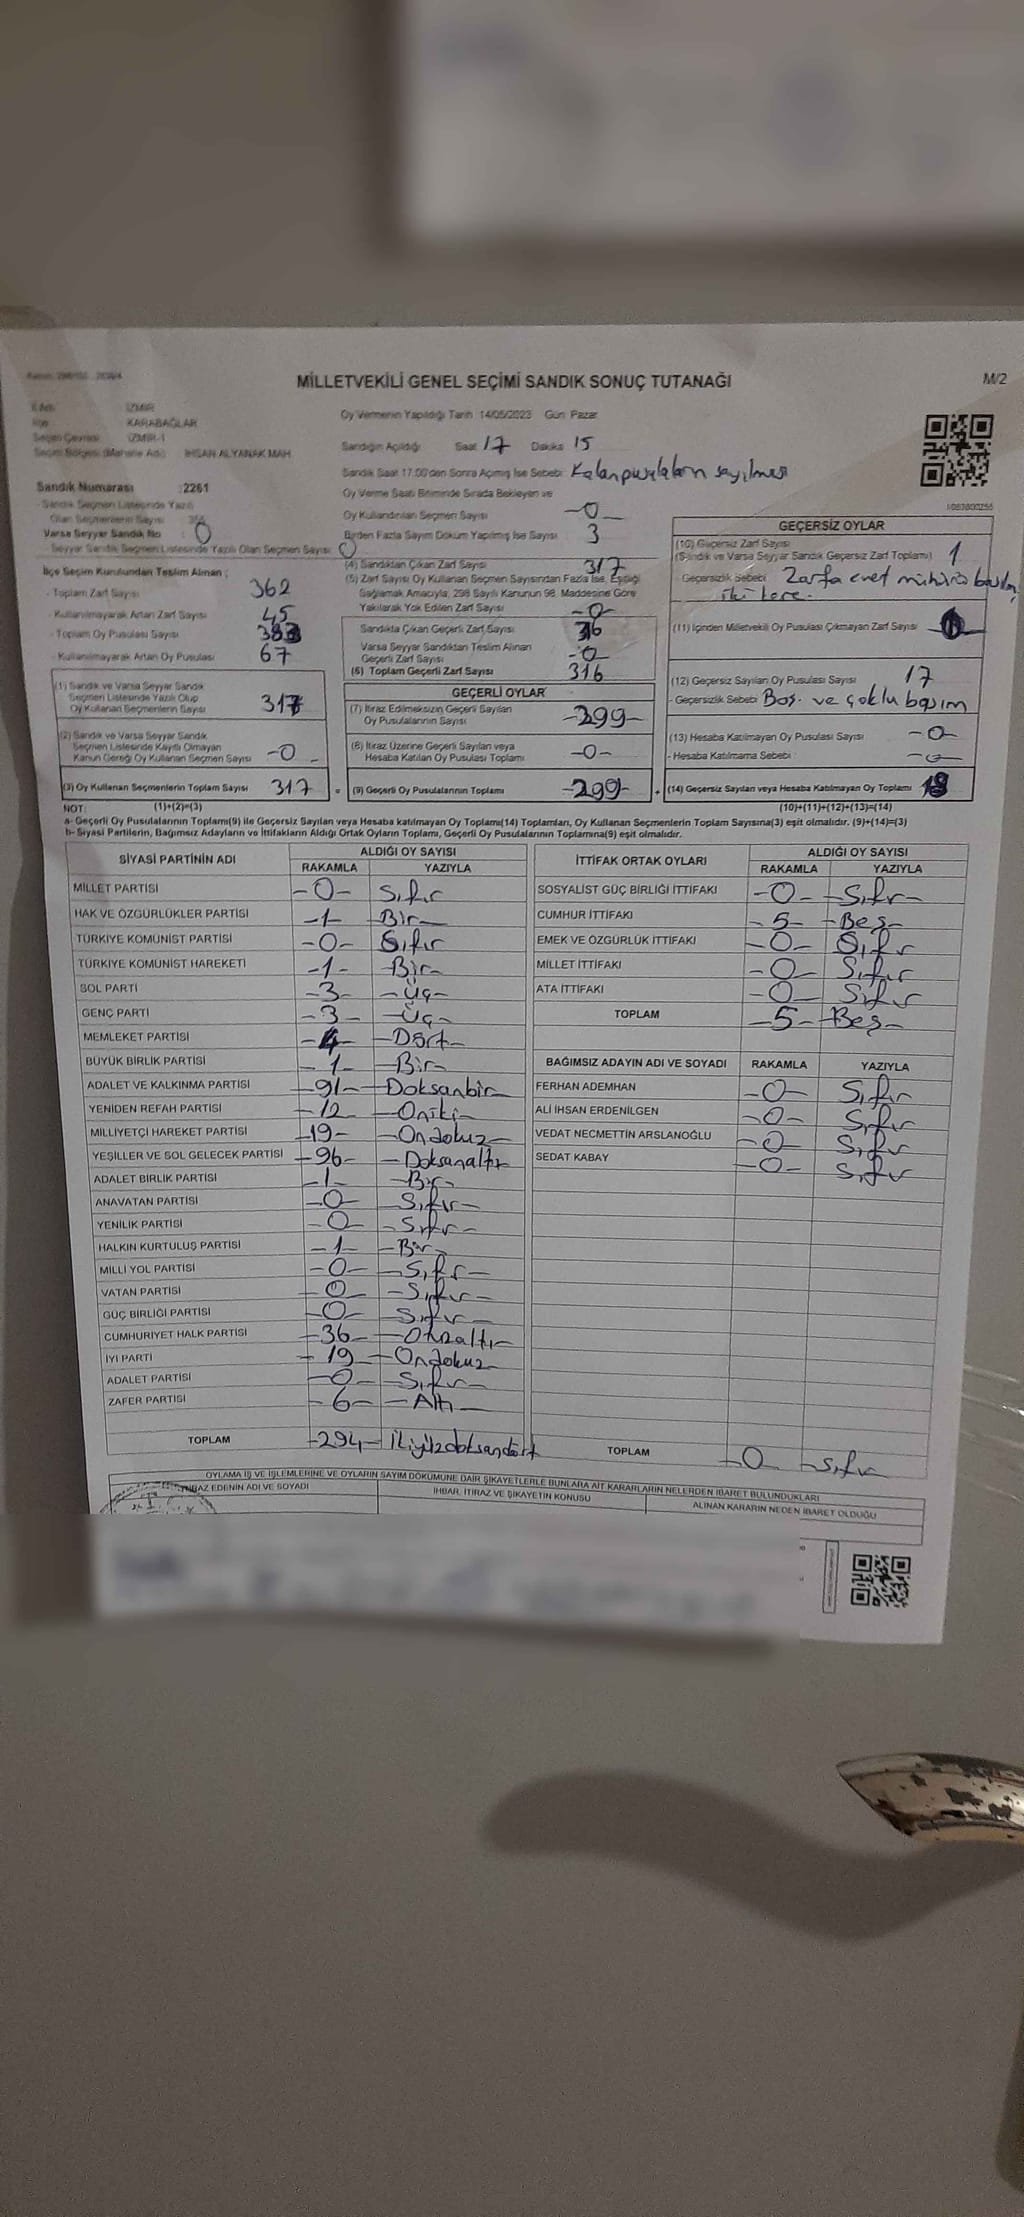 MİLLETVEKİLİ GENEL SEÇİMİ SANDIK SONUÇ TUTANAĞI
M/2
İli Adı İZMİR
İlçe KARABAĞLAR
Seçim Çevresi İZMİR-1
Seçim Bölgesi (Mahalle Adı) İHSAN ALYANAK MAH.
Sandık Numarası :2261
- Sandık Seçmen Listesinde Yazılı
Olan Seçmenlerin Sayısı
Varsa Seyyar Sandık No 0
- Seyyar Sandık Seçmen Listesinde Yazılı Olan Seçmen Sayısı 0
İlçe Seçim Kurulundan Teslim Alınan ;
- Toplam Zarf Sayısı 362
- Kullanılmayarak Artan Zarf Sayısı 45
- Toplam Oy Pusulası Sayısı
- Kullanılmayarak Artan Oy Pusulası 67
(1) Sandık ve Varsa Seyyar Sandık
Seçmen Listesinde Yazılı Olup
Oy Kullanan Seçmenlerin Sayısı 317
(2) Sandık ve Varsa Seyyar Sandık
Seçmen Listesinde Kayıtlı Olmayan
Kanun Gereği Oy Kullanan Seçmen Sayısı -0-
(3) Oy Kullanan Seçmenlerin Toplam Sayısı 317 =
Oy Vermenin Yapıldığı Tarih 14/05/2023 Gün Pazar
Sandığın Açıldığı Saat 17 Dakika 15
Sandık Saat 17.00'den Sonra Açılmış İse Sebebi Kalan pusulaların sayılması
Oy Verme Saati Bitiminde Sırada Bekleyen ve
Oy Kullandırılan Seçmen Sayısı -0-
Birden Fazla Sayım Döküm Yapılmış İse Sayısı 3
(4) Sandıktan Çıkan Zarf Sayısı 317
(5) Zarf Sayısı Oy Kullanan Seçmen Sayısından Fazla İse, Eşitliği
Sağlamak Amacıyla; 298 Sayılı Kanunun 98. Maddesine Göre
Yakılarak Yok Edilen Zarf Sayısı -0-
Sandıkta Çıkan Geçerli Zarf Sayısı 316
Varsa Seyyar Sandıktan Teslim Alınan
Geçerli Zarf Sayısı -0
(6) Toplam Geçerli Zarf Sayısı 316
GEÇERLİ OYLAR
(7) İtiraz Edilmeksizin Geçerli Sayılan
Oy Pusulalarının Sayısı -299-
(8) İtiraz Üzerine Geçerli Sayılan veya
Hesaba Katılan Oy Pusulası Toplamı -0-
(9) Geçerli Oy Pusulalarının Toplamı -299- +
1063800255
GEÇERSİZ OYLAR
(10) Geçersiz Zarf Sayısı
(Sandık ve Varsa Seyyar Sandık Geçersiz Zarf Toplamı) 1
- Geçersizlik Sebebi Zarfa evet mührü basılm
iki kere.
(11) İçinden Milletvekili Oy Pusulası Çıkmayan Zarf Sayısı
(12) Geçersiz Sayılan Oy Pusulası Sayısı 17
- Geçersizlik Sebebi Boş. ve çoklu basım
(13) Hesaba Katılmayan Oy Pusulası Sayısı -0-
- Hesaba Katılmama Sebebi -0-
(14) Geçersiz Sayılan veya Hesaba Katılmayan Oy Toplamı 18
NOT: (1)+(2)=(3) (10)+(11)+(12)+(13)=(14)
a- Geçerli Oy Pusulalarının Toplamı(9) ile Geçersiz Sayılan veya Hesaba katılmayan Oy Toplamı(14) Toplamları, Oy Kullanan Seçmenlerin Toplam Sayısına(3) eşit olmalıdır. (9)+(14)=(3)
b- Siyasi Partilerin, Bağımsız Adayların ve İttifakların Aldığı Ortak Oyların Toplamı, Geçerli Oy Pusulalarının Toplamına(9) eşit olmalıdır.
SİYASİ PARTİNİN ADI ALDIĞI OY SAYISI
RAKAMLA YAZIYLA
MİLLET PARTİSİ -0- Sıfır
HAK VE ÖZGÜRLÜKLER PARTİSİ -1- Bir-
TÜRKİYE KOMÜNİST PARTİSİ -0- Sıfır
TÜRKİYE KOMÜNİST HAREKETİ -1- Bir-
SOL PARTİ -3- -Üç-
GENÇ PARTİ -3- -Üç-
MEMLEKET PARTİSİ -4- -Dört-
BÜYÜK BİRLİK PARTİSİ -1- -Bir-
ADALET VE KALKINMA PARTİSİ -91- -Doksanbir-
YENİDEN REFAH PARTİSİ -12- -Oniki-
MİLLİYETÇİ HAREKET PARTİSİ -19- -Ondokuz-
YEŞİLLER VE SOL GELECEK PARTİSİ -96- -Doksanaltı-
ADALET BİRLİK PARTİSİ -1- -Bir-
ANAVATAN PARTİSİ -0- -Sıfır-
YENİLİK PARTİSİ -0- -Sıfır-
HALKIN KURTULUŞ PARTİSİ -1- -Bir-
MİLLİ YOL PARTİSİ -0- -Sıfır-
VATAN PARTİSİ -0- -Sıfır-
GÜÇ BİRLİĞİ PARTİSİ -0- -Sıfır-
CUMHURİYET HALK PARTİSİ -36- -Otuzaltı-
İYİ PARTİ -19- -Ondokuz-
ADALET PARTİSİ -0- -Sıfır-
ZAFER PARTİSİ -6- -Altı-
TOPLAM -294- İkiyüzdoksandört
İTTİFAK ORTAK OYLARI ALDIĞI OY SAYISI
RAKAMLA YAZIYLA
SOSYALİST GÜÇ BİRLİĞİ İTTİFAKI -0- -Sıfır-
CUMHUR İTTİFAKI -5- -Beş-
EMEK VE ÖZGÜRLÜK İTTİFAKI -0- Sıfır
MİLLET İTTİFAKI -0- Sıfır
ATA İTTİFAKI -0- Sıfır
TOPLAM -5- -Beş-
BAĞIMSIZ ADAYIN ADI VE SOYADI RAKAMLA YAZIYLA
FERHAN ADEMHAN -0- Sıfır
ALİ İHSAN ERDENİLGEN -0- Sıfır
VEDAT NECMETTİN ARSLANOĞLU -0- Sıfır
SEDAT KABAY -0- Sıfır
TOPLAM -0- -Sıfır
OYLAMA İŞ VE İŞLEMLERİNE VE OYLARIN SAYIM DÖKÜMÜNE DAİR ŞİKAYETLERLE BUNLARA AİT KARARLARIN NELERDEN İBARET BULUNDUKLARI
İTİRAZ EDENİN ADI VE SOYADI
İHBAR, İTİRAZ VE ŞİKAYETİN KONUSU
ALINAN KARARIN NEDEN İBARET OLDUĞU